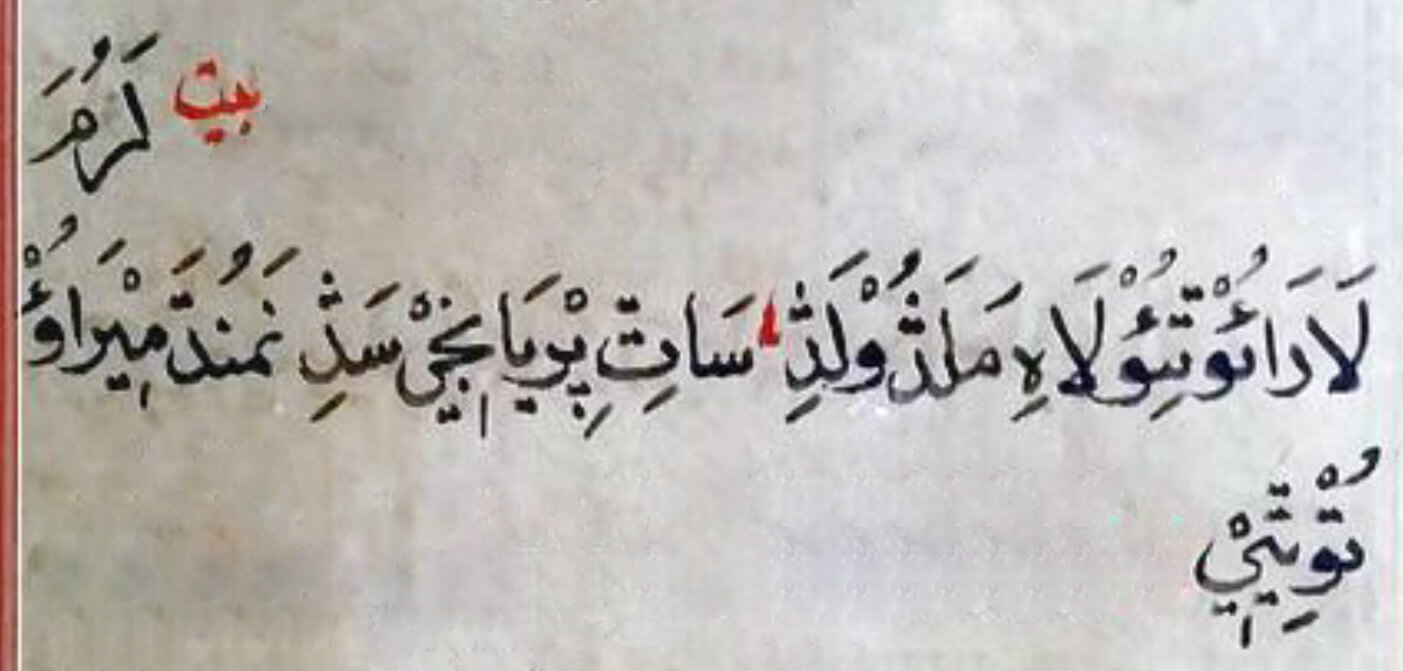 بيت كَرُمَ
لَادَائُوْتِئُوْلَاهِ مَلَڎُوْلَڎِ سَاتِ پِرْيَانٖجِيْ سَڎِ نَمُندَ مِيْرَاؤُ
تُوْتِيْ